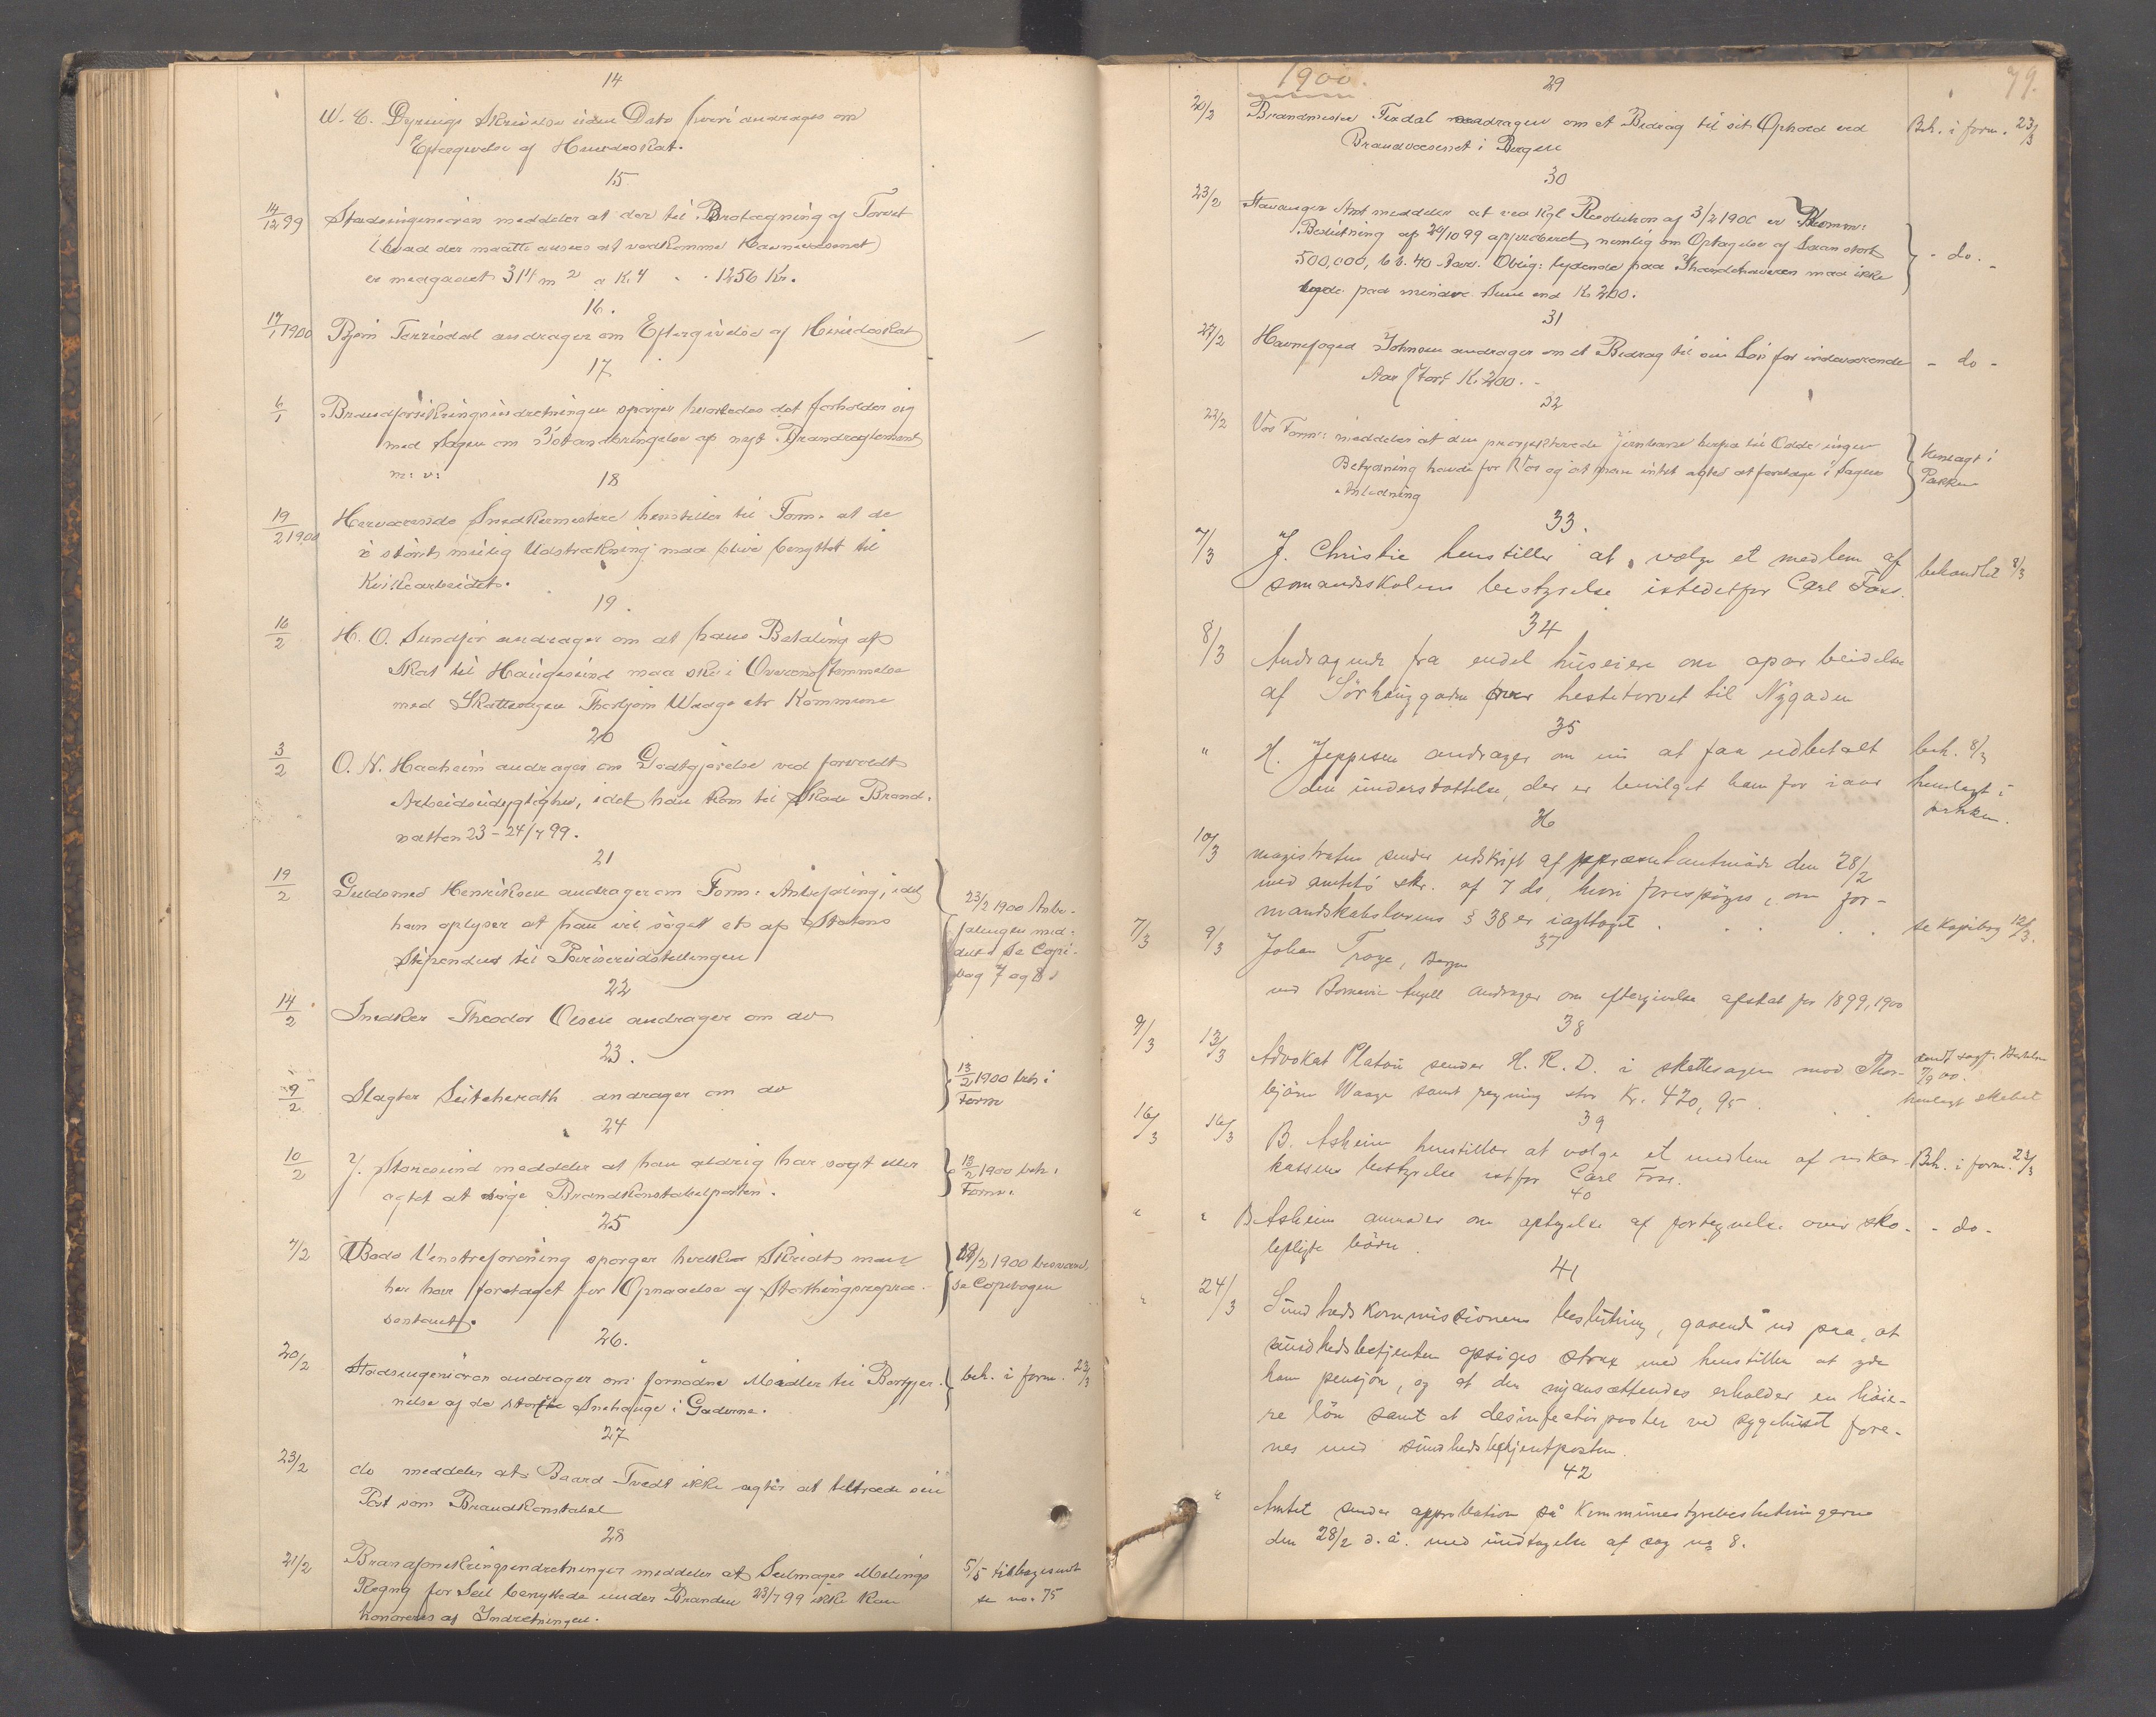 14
W. C. Dyrings Skrivelse uden Dato hvori andrages om
Eftergivelse af Hundeskat.
15
14/12 99 Stadsingeniören meddeler at der til Brolægning af Torvet
(hvad der maatte ansees at vedkomme Havnevæsenet)
er medgaaet 314 m 2 a K. 4 - - 1256 Kr.
16.
17/1 1900 Björn andrager om Eftergivelse af Hundeskat
17
6/1 Brandforsikringsindretningen spörger hvorledes det forholder sig
med Sagen om Istandbringelse af nyt Brandreglement
m: v:
18
19/2 1900 Herværende Snedkermestere henstiller til Form. at de
i störst mulig Udstrækning maa blive benyttet til
19.
16/2 H. O. Sundför andrager om at hans Betaling af
Skat til Haugesund maa ske i Overensstemmelse
med Skattesagen Thorbjörn Waage ctr Kommune
20
3/2 O. N. Haaheim andrager om Godtgjörelse ved forvoldt
Arbeidsudygtighed, idet han kom til Skade Brand-
natten 23-24/7 99.
21
19/2 Guldsmed Henriksen andrager om Form: Anbefaling, idet
han oplyser at han vil söge et af Statens
Stipendier til Pariserudstillingen
23/2 1900 Anbe-
falingen med-
delt Se Copi-
bog 7 og 8
22
14/2 Snedker Theodor Olsen andrager om do
23.
9/2 Slagter andrager om do
13/2 1900 beh i
Form
24
10/2 J. Storesund meddeler at han aldrig har sögt eller
agtet at söge Brandkonstabelposten.
13/2 1900 beh i
Form.
25
7/2 Bodö Venstreforening spörger hvilke Skridt man
her har foretaget for Opnaaelse af Storthingsrepræ-
sentant.
1900 besvaret,
se Copibogen
26.
20/2 Stadsingeniören andrager om fornödne Midler til Bortfjer-
nelse af de store Snehauge i Gaderne.
beh. i form. 23/3
27
23/2 do meddeler at Baard Tvedt ikke agter at tiltræde sin
Post som Brandkonstabel
28
21/2 Brandforsikringsindretningen meddeler at Seilmager Mælings
Regng for Seil benyttede under Branden 23/7 99 ikke kan
honoreres af Indretningen.
5/5 tilbagesendt
se no. 75
1900.
79.
29
20/2 Brandmester andrager om et Bidrag til sit Ophold ved
Brandvæsenet i Bergen
Beh. i form. 23/3
30
23/2 Stavanger Amt meddeler at ved Kgl Resolution af 3/2 1900 er Komm:
Beslutning af 20/10 99 approberet, nemlig om Optagelse af Laan stort
500,000, 40 Aar. Oblig: lydende paa Ihændehaveren maa ikke
lyde paa mindre Sum end K. 200.
- do. -
31
27/2 Havnefoged Johnsen andrager om et Bidrag til sin Lön for indeværende
Aar stort K. 200. -
- do -
32
22/2 Vos Form: meddeler at den prosjekterede Jernbane herfra til Odde ingen
Betydning havde for Vos og at man intet agter at foretage i Sagens
Anledning
Henlagt i
Pakken
33.
7/3 J. Christie henstiller at vælge et medlem af
sömandsskolens bestyrelse istedetfor Carl Foss.
behandlet 8/3
34
8/3 Andragende fra endel huseiere om oparbeidelse
af Sörhauggaden over hestetorvet til Nygaden
35
" H. Jeppesen andrager om nu at faa udbetalt
den understöttelse, der er bevilget ham for iaar
beh. 8/3
henlagt i
pakken.
36
10/3 magistraten sender udskrift af representantmöde den 28/2
med amtets skr. af 7 ds, hvori forespörges, om for-
mandskabslovens § 38 er iagttaget . . . .
se Kopibog 12/3.
37
7/3 9/3 Johan Troye, Bergen
ved andrager om eftergivelse af skat for 1899, 1900
38
9/3 13/3 Advokat Platou sender H. R. D. i skattesagen mod Thor-
björn Waage samt regning stor Kr. 420,95 . . .
henlagt skabet
39
16/3 16/3 B. Asheim henstiller at vælge et medlem af
kassens bestyrelse istfor Carl Foss.
Beh. i form. 23/3
40
" " B Asheim anmoder om optagelse af fortegnelse over sko-
lepligtige börn .
- do -
41
" 24/3 Sundhedskommissionens beslutning, gaaende ud paa, at
sundhedsbetjenten opsiges strax med henstillen at yde
ham pensjon, og at den nyansættendes erholder en höie-
re lön samt at desinfektörposten ved sygehuset fore-
nes med sundhedsbetjentposten.
42
" Amtet sender approbation på Kommunestyrebeslutningerne
den 28/2 d. å. med undtagelse af sag no 8.